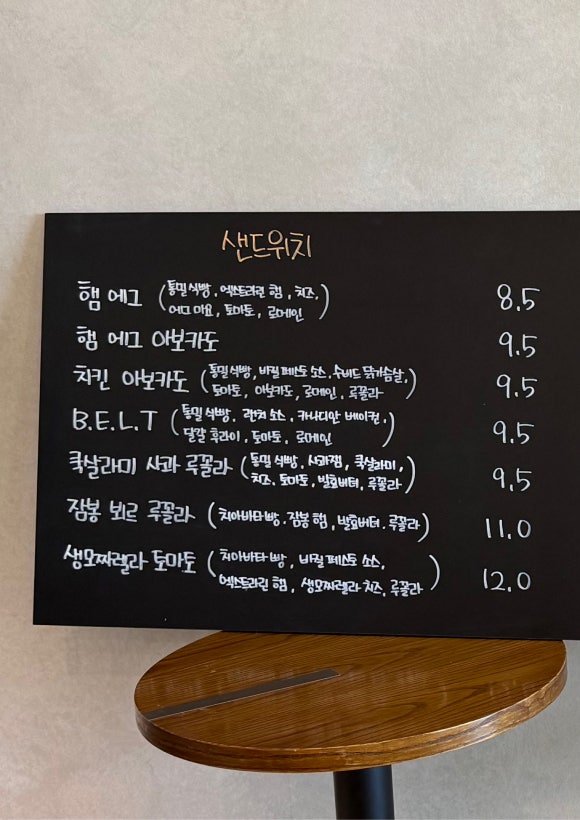 샌드위치
햄 에그 (통밀식빵, 엑스트라린 햄, 치즈, 8.5
에그마요, 토마토, 로메인)
햄 에그 아보카도 9.5
치킨 아보카도 (통밀식빵, 바질페스토 소스, 수비드 닭가슴살, 9.5
토마토, 아보카도, 로메인, 루꼴라)
B.E.L.T (통밀식빵, 랜치소스, 카나디안 베이컨, 9.5
달걀 후라이, 토마토, 로메인)
쿡살라미 사과 루꼴라 (통밀식빵, 사과잼, 쿡살라미, 9.5
치즈, 토마토, 발효버터, 루꼴라)
잠봉 뵈르 루꼴라 (치아바타빵, 잠봉 햄, 발효버터, 루꼴라) 11.0
생모짜렐라 토마토 (치아바타빵, 바질페스토 소스, 12.0
엑스트라린 햄, 생모짜렐라 치즈, 루꼴라)